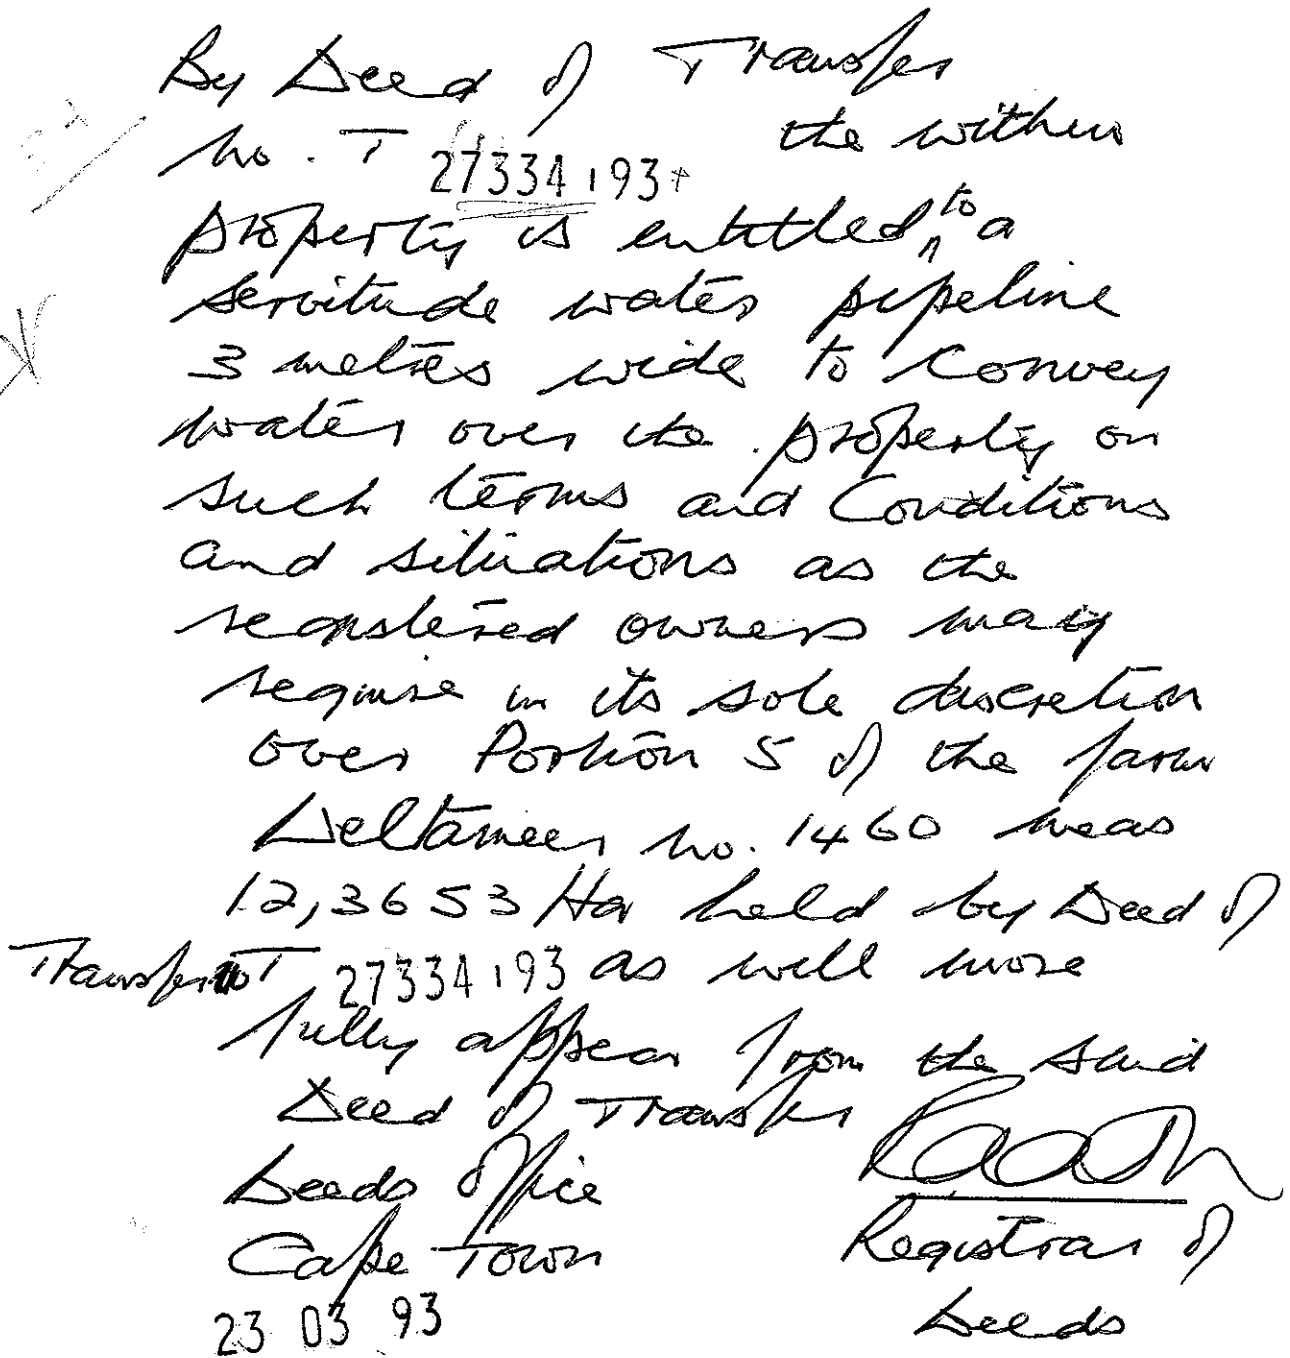 By Deed of Transfer
no. T 27334/93 the within
property is entitled to a
servitude water pipeline
3 metres wide to convey
water over the property on
such terms and conditions
and situations as the
registered owners may
require in its sole discretion
over Portion 5 of the farm
Deltameer no. 1460 meas
12,3653 Ha held by Deed of
Transfer no T 27334/93 as will more
fully appear from the said
Deed of Transfer
Deeds Office
Cape Town Registrar of
23 03 93 Deeds